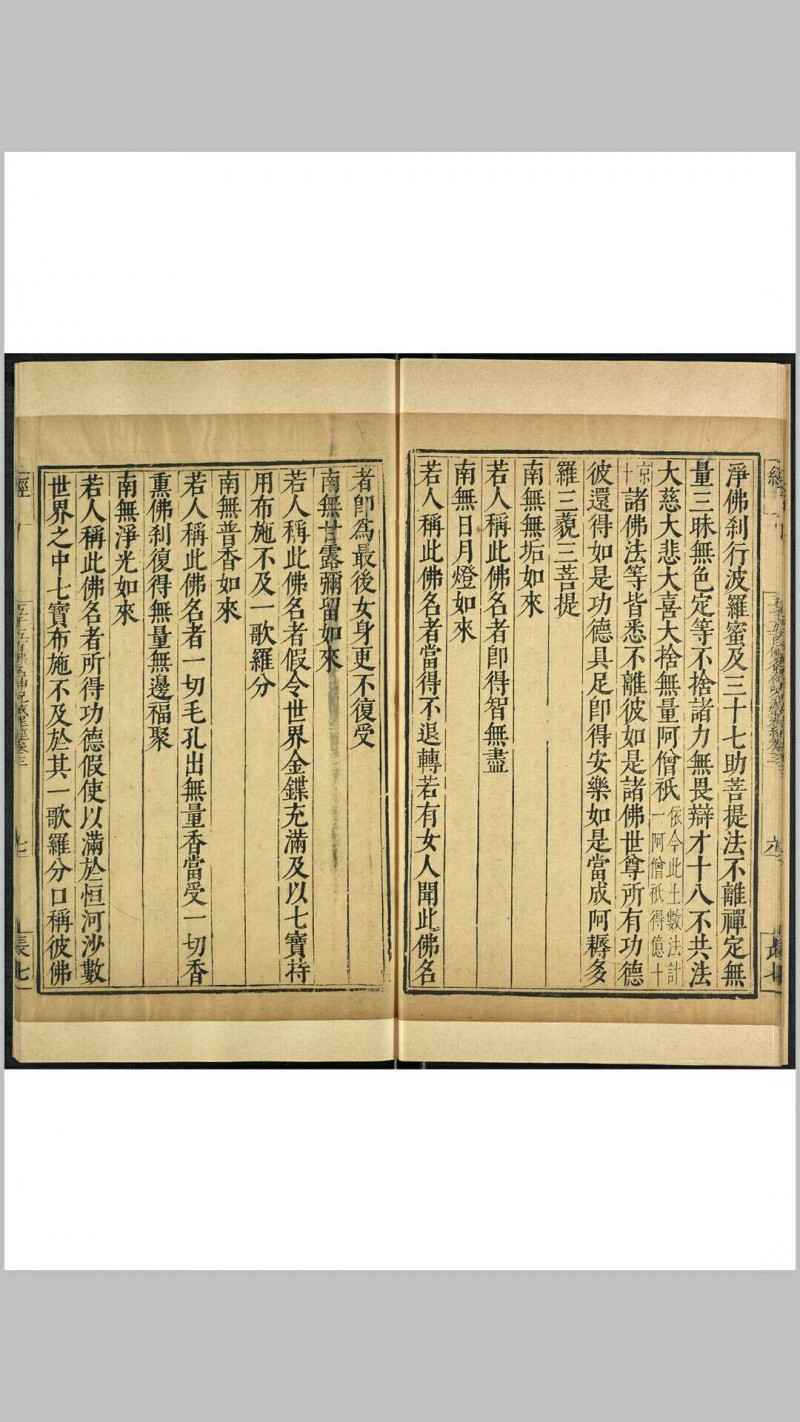 淨佛刹行波羅蜜及三十七助菩提法不離禪定無
量三昧無色定等不捨諸力無畏辯才十八不共法
大慈大悲大喜大捨無量阿僧祇依今此土數法計一阿僧祇得億十
京十諸佛法等皆悉不離彼如是諸佛世尊所有功德
彼還得如是功德具足卽得安樂如是當成阿耨多
羅三藐三菩提
南無無垢如來
若人稱此佛名者卽得智無盡
南無日月燈如來
若人稱此佛名者當得不退轉若有女人聞此佛名
者卽爲最後女身更不復受
南無甘露彌留如來
若人稱此佛名者假令世界金鏶充滿及以七寶持
用布施不及一歌羅分
南無普香如來
若人稱此佛名者一切毛孔出無量香當受一切香
熏佛刹復得無量無邊福聚
南無淨光如來
若人稱此佛名者所得功德假使以滿於恒河沙數
世界之中七寶布施不及於其一歌羅分口稱彼佛
經
七
長七